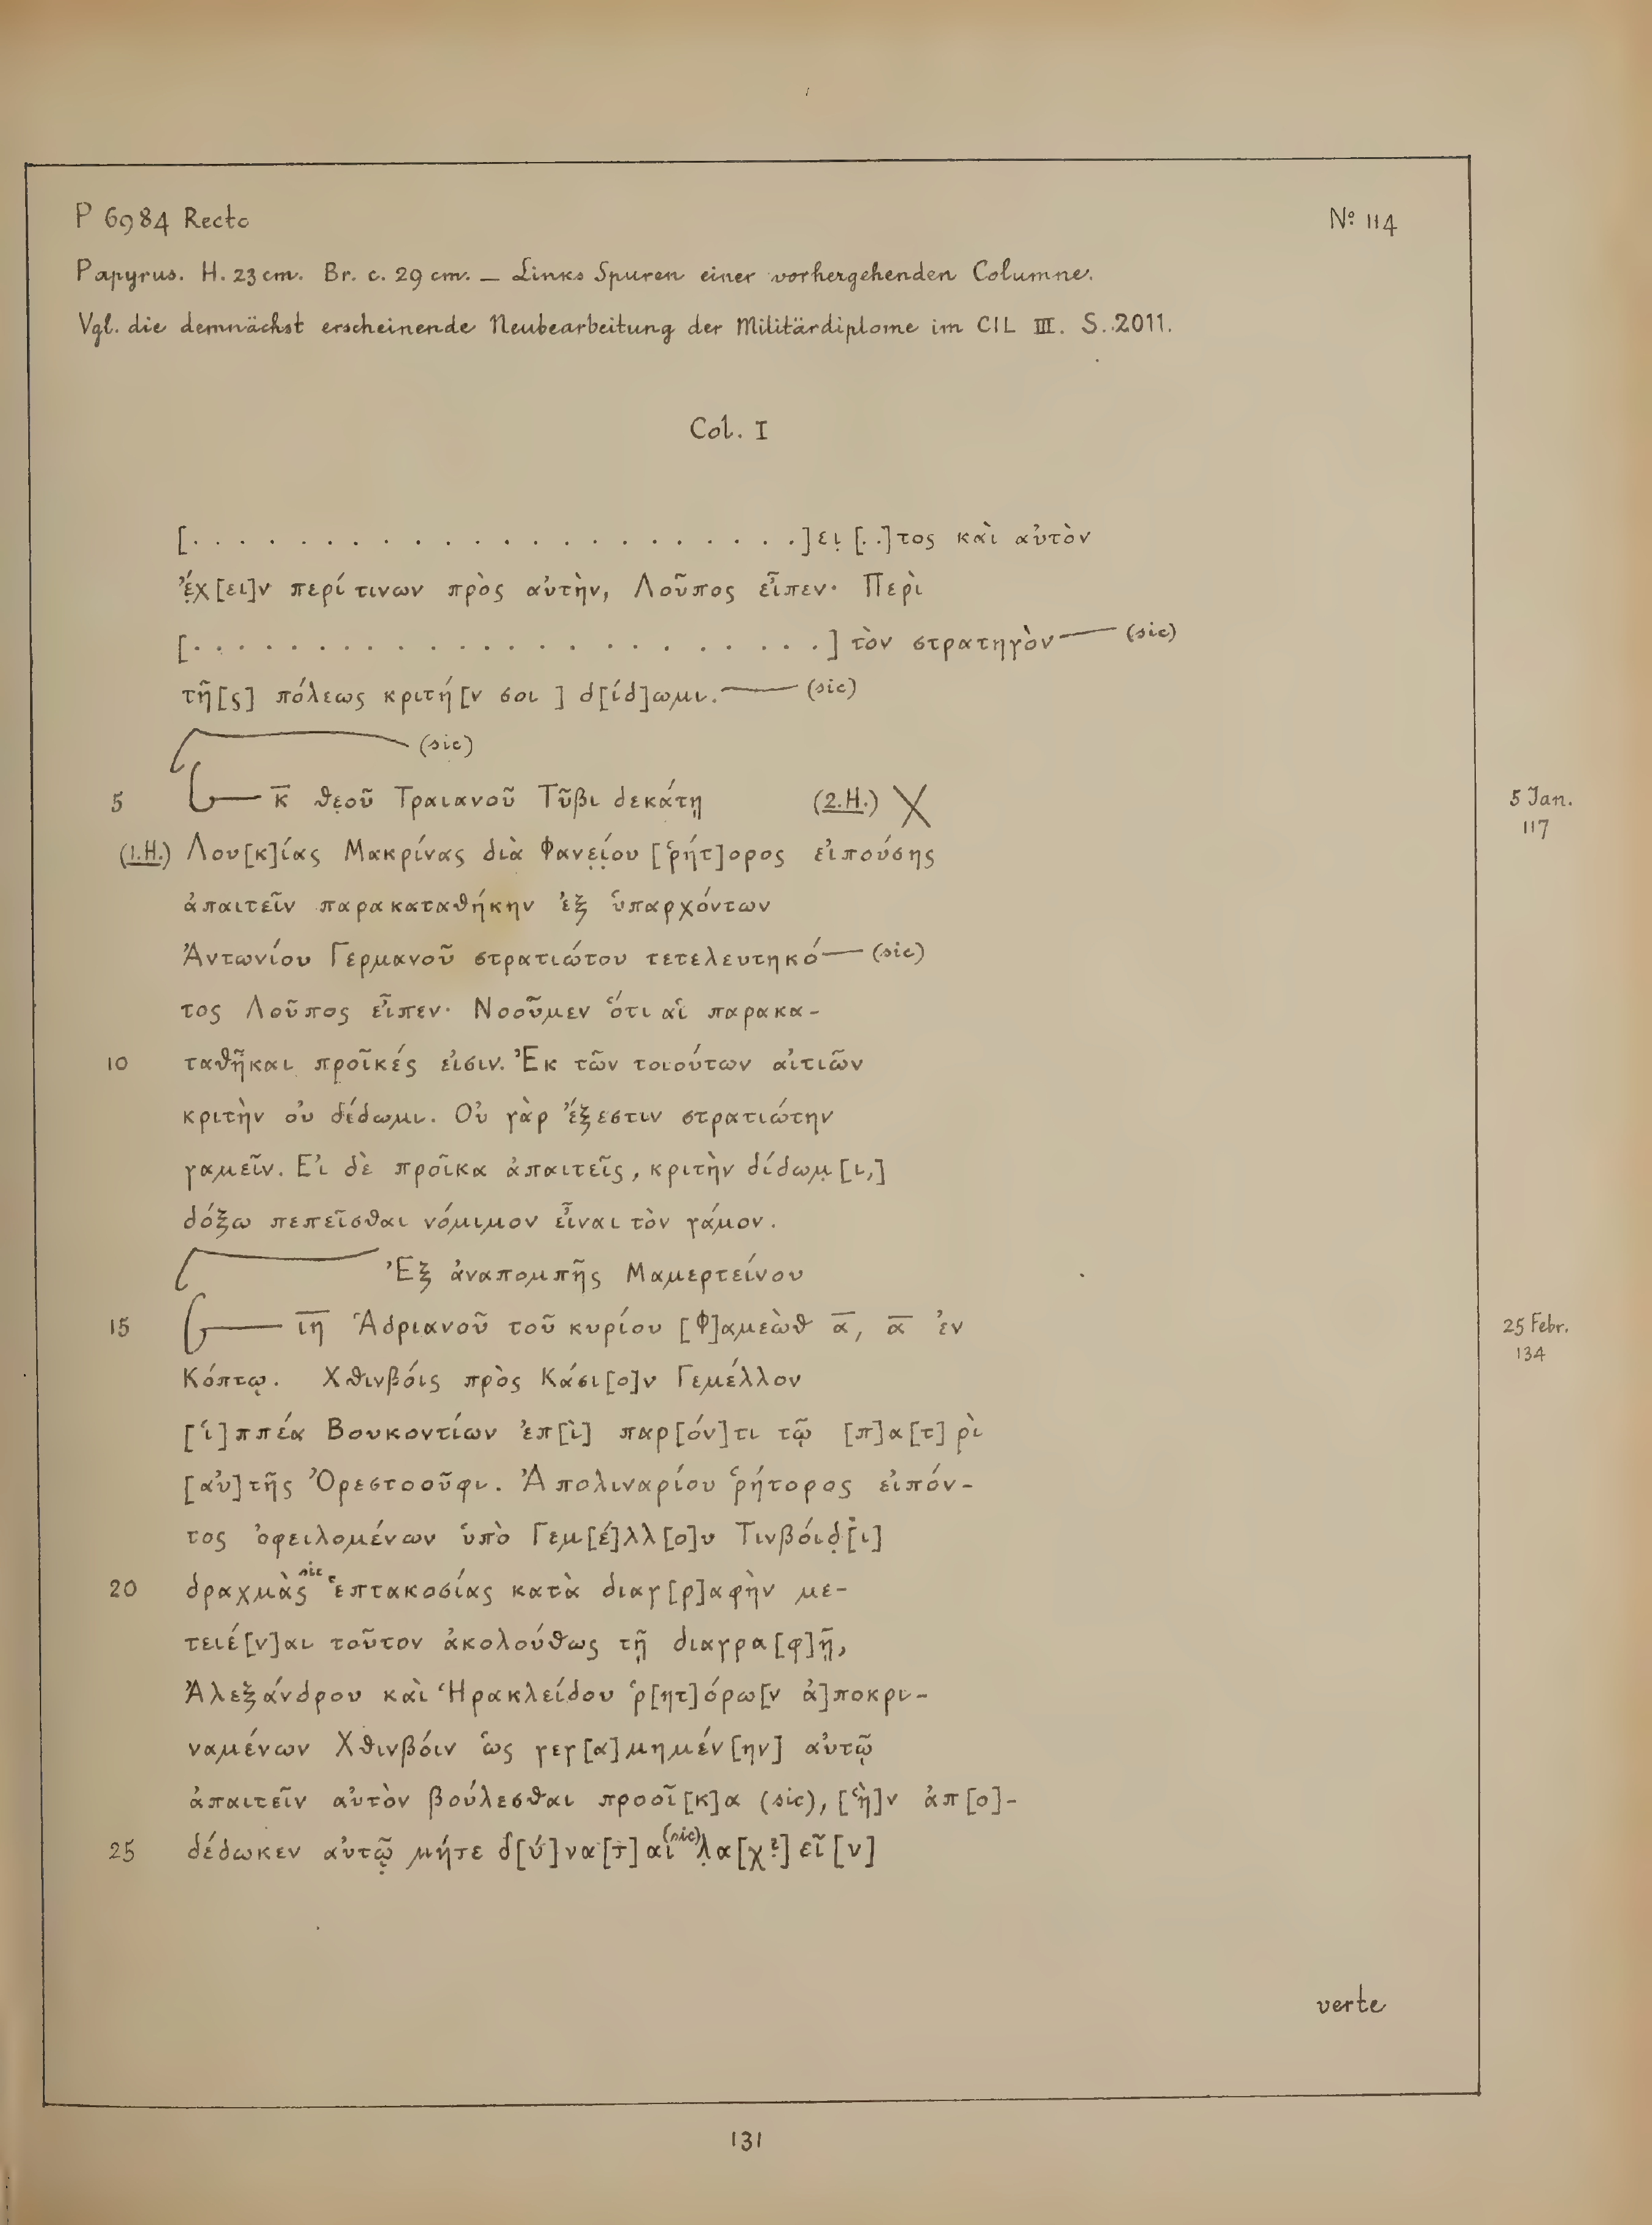 P 6984 Recto
Nº 114
Papyrus. H. 23 cm. Br. c. 29 cm. — Links Spuren einer vorhergehenden Columne.
Vgl. die demnächst erscheinende Neubearbeitung der Militärdiplome im CIL III. S. 2011.
Col. I
[. . . . . . . . . . . . . . . . . . . . . . . . .]ει̣ [. .]τος καὶ αὐτὸν
ἔ̣χ[ει]ν περί τινων πρὸς αὐτὴν, Λοῦπος εἶπεν· Περὶ
[. . . . . . . . . . . . . . . . . . . . . . . . .] τὸν στρατηγὸν — (sic)
τῆ[ς] πόλεως κριτή[ν σοι ] δ[ίδ]ωμι. — (sic)
(sic)
5 κ̅ θε̣οῦ Τραιανοῦ Τῦβι δεκάτῃ (2.H.) X 5 Jan. 117
(1.H.) Λου[κ]ίας Μακρίνας διὰ Φανε̣ί̣ου [ῥήτ]ορος εἰπούσης
ἀπαιτεῖν παρακαταθήκην ἐξ ὑπαρχόντων
Ἀντωνίου Γερμανοῦ στρατιώτου τετελευτηκό — (sic)
τος Λοῦπος εἶπεν· Νοοῦμεν ὅτι αἱ παρακα-
10 ταθῆκαι προῖκές εἰσιν. Ἐκ τῶν τοιούτων αἰτιῶν
κριτὴν οὐ δίδωμι. Οὐ γὰρ ἔξεστιν στρατιώτην
γαμεῖν. Εἰ δὲ προῖκα ἀπαιτεῖς, κριτὴν δίδωμ̣[ι,]
δόξω πεπεῖσθαι νόμιμον εἶναι τὸν γάμον.
Ἐξ ἀναπομπῆς Μαμερτείνου
15 ι̅η̅ Ἁδριανοῦ τοῦ κυρίου [Φ]αμεὼθ α̅, α̅ ἐν 25 Febr. 134
Κόπτῳ. Χθινβόις πρὸς Κάσι[ο]ν Γεμέλλον
[ἱ]ππέα Βουκοντίων ἐπ[ὶ] παρ[όν]τι τῷ [π]α[τ]ρὶ
[αὐ]τῆς Ὀρεστοοῦφι. Ἀπολιναρίου ῥήτορος εἰπόν-
τος ὀφειλομένων ὑπὸ Γεμ[έ]λλ[ο]υ Τινβόιδ̣[ι]
20 δραχμὰς sic ἑπτακοσίας κατὰ διαγ[ρ]αφὴν με-
τειέ[ν]αι τοῦτον ἀκολούθως τῇ διαγρα[φ]ῇ,
Ἀλεξάνδρου καὶ Ἡρακλείδου ῥ[ητ]όρω[ν ἀ]ποκρι-
ναμένων Χθινβόιν ὡς γεγ[α]μημέν[ην] αὐτῷ
ἀπαιτεῖν αὐτὸν βούλεσθαι προοῖ[κ]α (sic), [ἣ]ν ἀπ[ο]-
25 δέδωκεν αὐτῷ̣ μήτε δ[ύ]να[τ]αι (sic) λ̣α[χ?]εῖ[ν]
verte
131